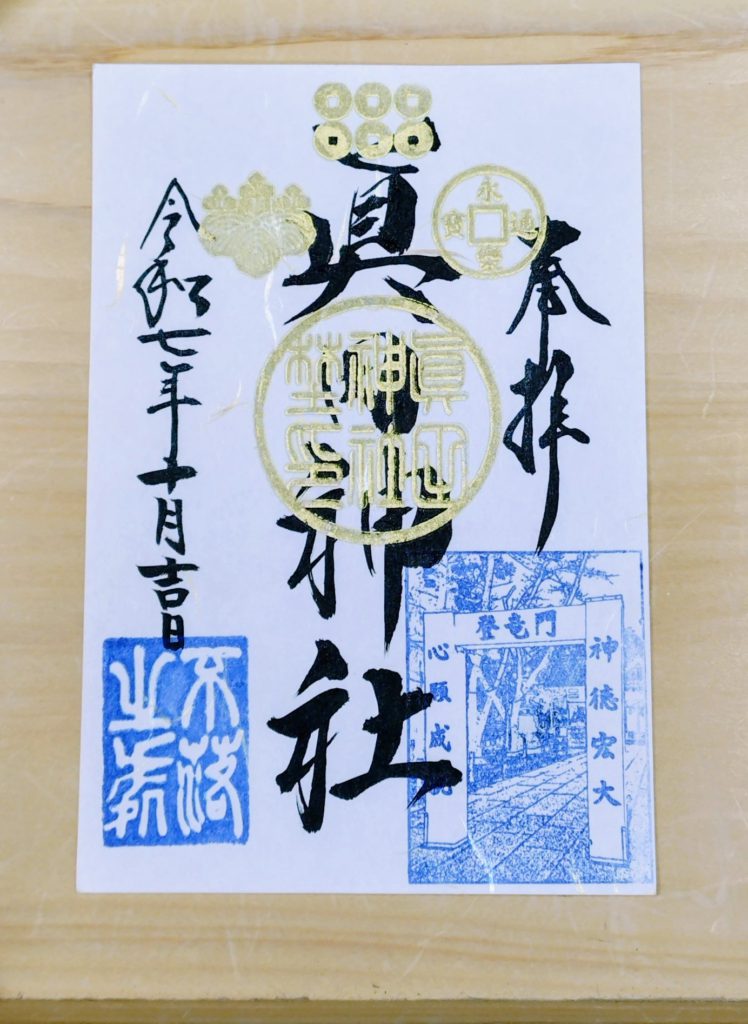 奉拝
永樂通寶
眞田神社
眞田神社
令和七年十月吉日
登竜門
神徳宏大
心願成就
不落之